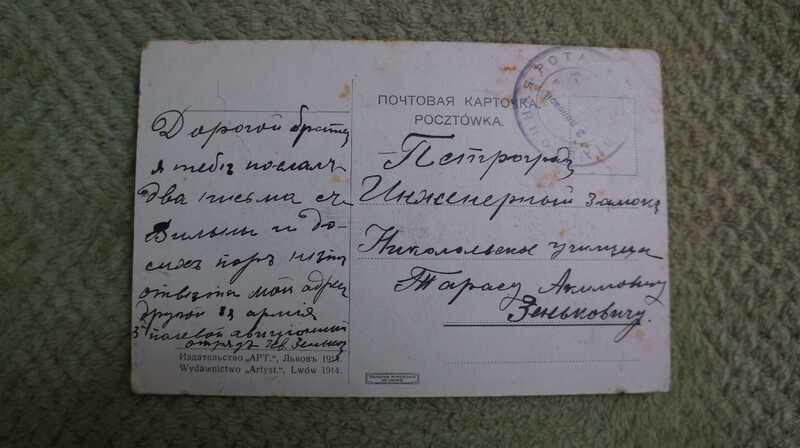 ПОЧТОВАЯ КАРТОЧКА.
POCZTÓWKA.
РОТА
Дорогой братец
я тебѣ послалъ
два письма съ
Вильны и до-
сихъ поръ нѣтъ
отвѣта мой адрес
другой армія
3й полевой авіаціонный
отрядъ
Петроградъ
Инженерный замокъ
Николаевское училище
Тарасу Акимовичу
Зеньковичу.
Издательство „АРТ.", Львовъ 1914.
Wydawnictwo „Artyst.", Lwów 1914.